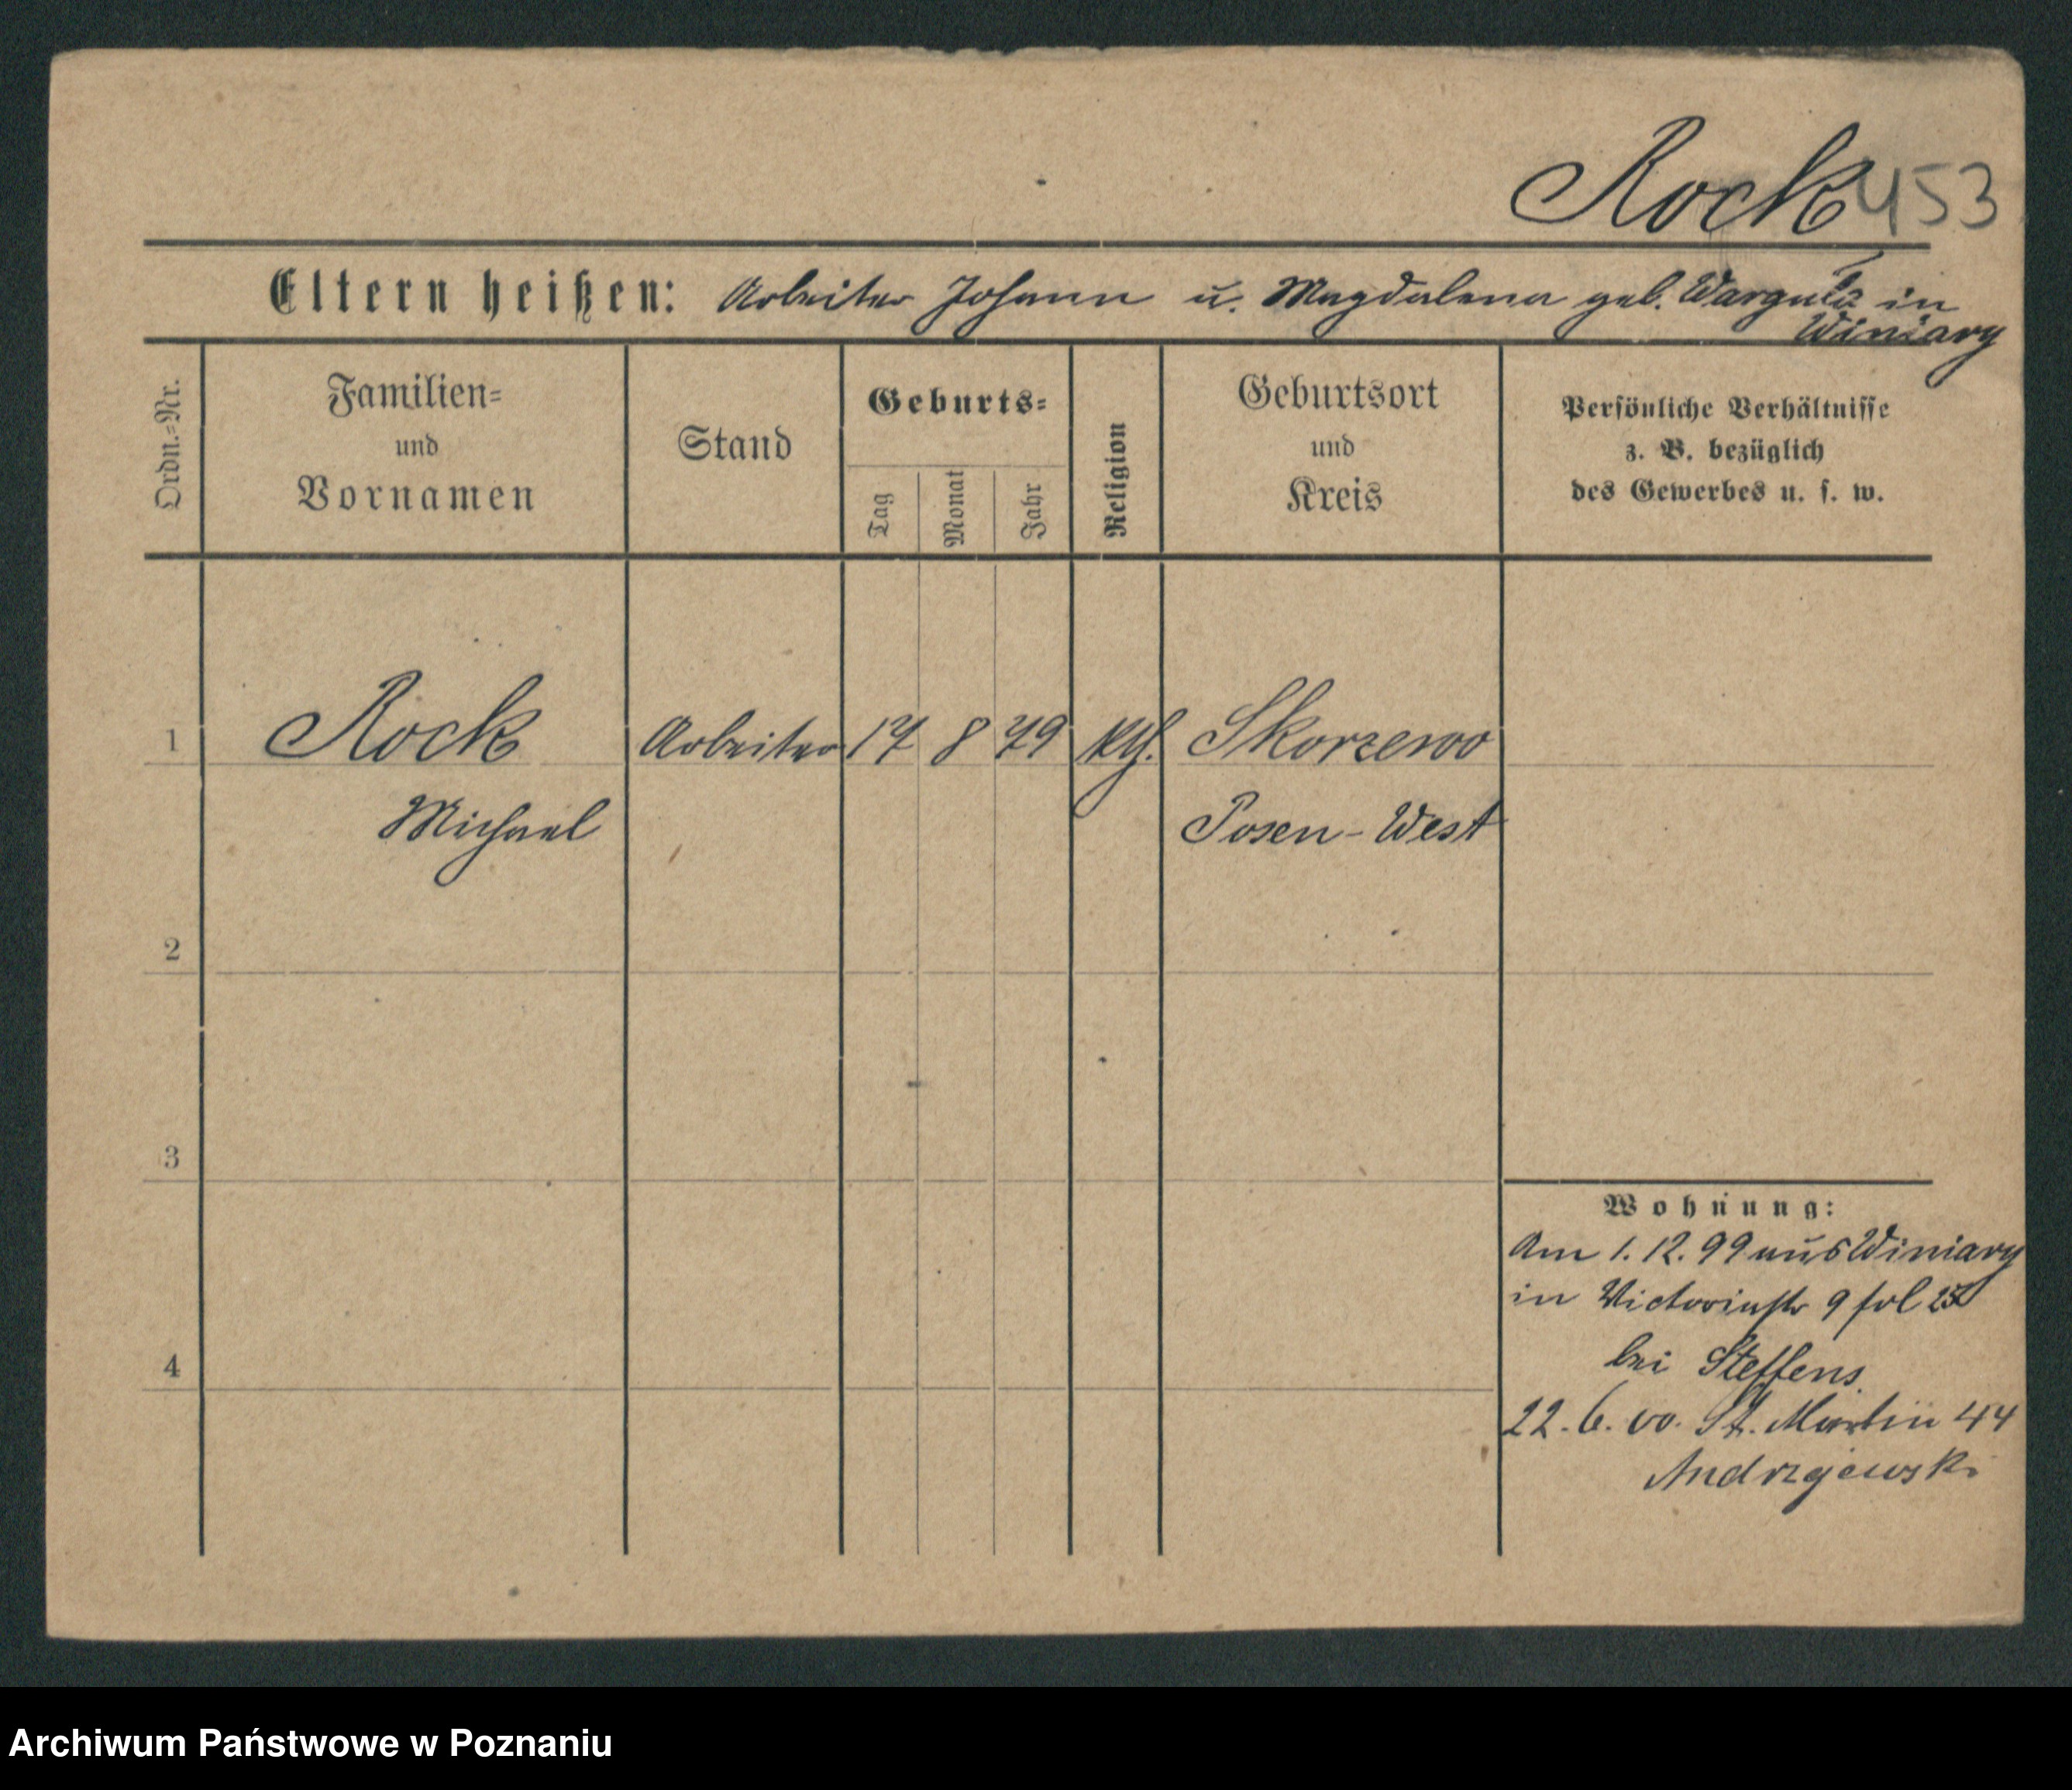 Rock 453
Eltern heißen: Arbeiter Johann u. Magdalena geb. in
Winiary
Ordn.=Nr.
Familien=
und
Vornamen
Stand
Geburts=
Tag
Monat
Jahr
Religion
Geburtsort
und
Kreis
Persönliche Verhältnisse
z. B. bezüglich
des Gewerbes u. s. w.
1 Rock Arbeiter 17 8 79 kth. Skorzewo
Michael Posen-West
2
3
4
Wohnung:
Am 1.12.99 aus Winiary
in Victoriastr 9 fol
bei Steffens
22.6.00. St. Martin 44
Andrzejewski
Archiwum Państwowe w Poznaniu